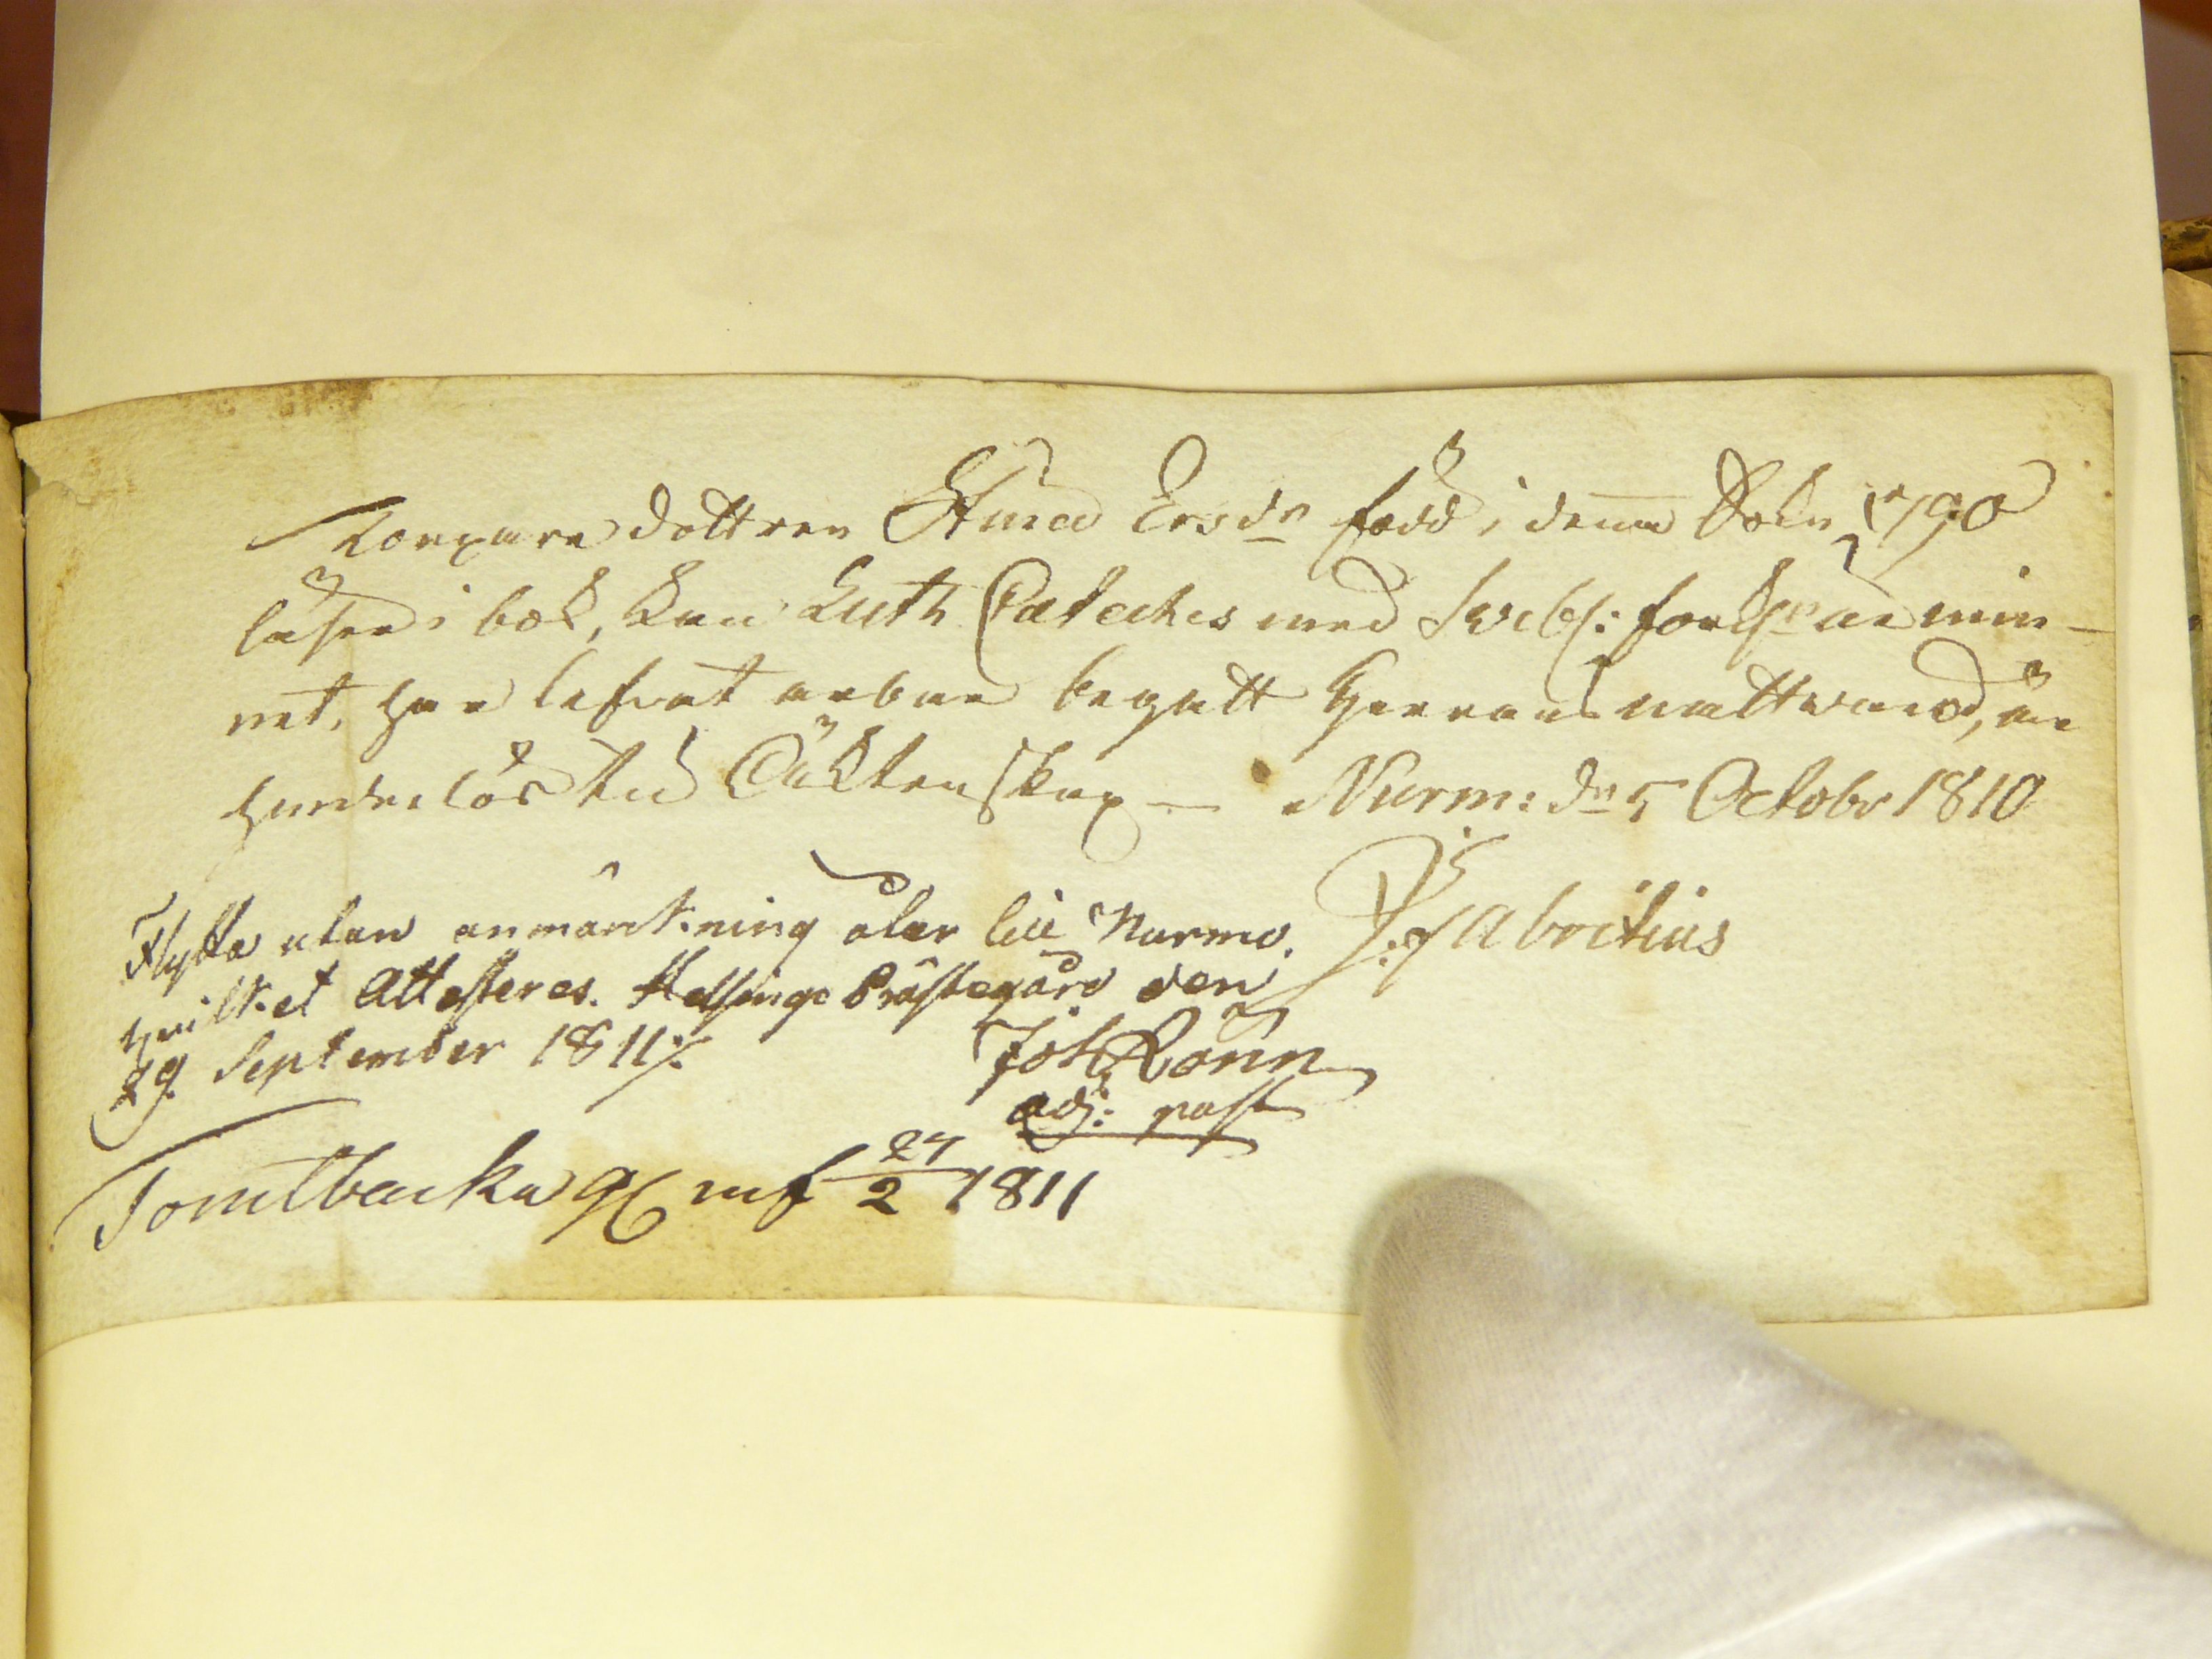 Torpare dottren Anna Ersdr född i denna Sokn 1790
läser i bok, kan Luth Cateches med Svebel: förkl:r ur min-
net, har lefvat ärbar begått Herrans nattvard, är
hinderlös til Äktenskap — Nurm: dn 5 Octobr 1810
P: Fabritius
Flytta utan anmärkning åter till Nurmo.
hvilket Attesteres. Helsinge Prästegård den
29 September 1811 ⁒
Joh Rönn
adj: past
Tomtbacka inf 27/2 1811